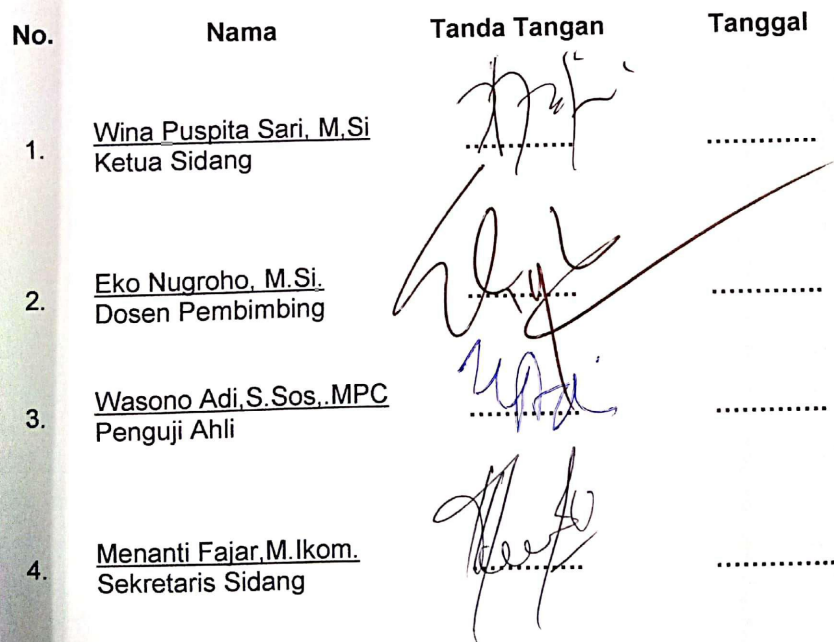 No. Nama Tanda Tangan Tanggal
1. Wina Puspita Sari, M,Si ............... ...............
Ketua Sidang
2. Eko Nugroho, M.Si. ............... ...............
Dosen Pembimbing
3. Wasono Adi,S.Sos,.MPC ............... ...............
Penguji Ahli
4. Menanti Fajar,M.Ikom. ............... ...............
Sekretaris Sidang